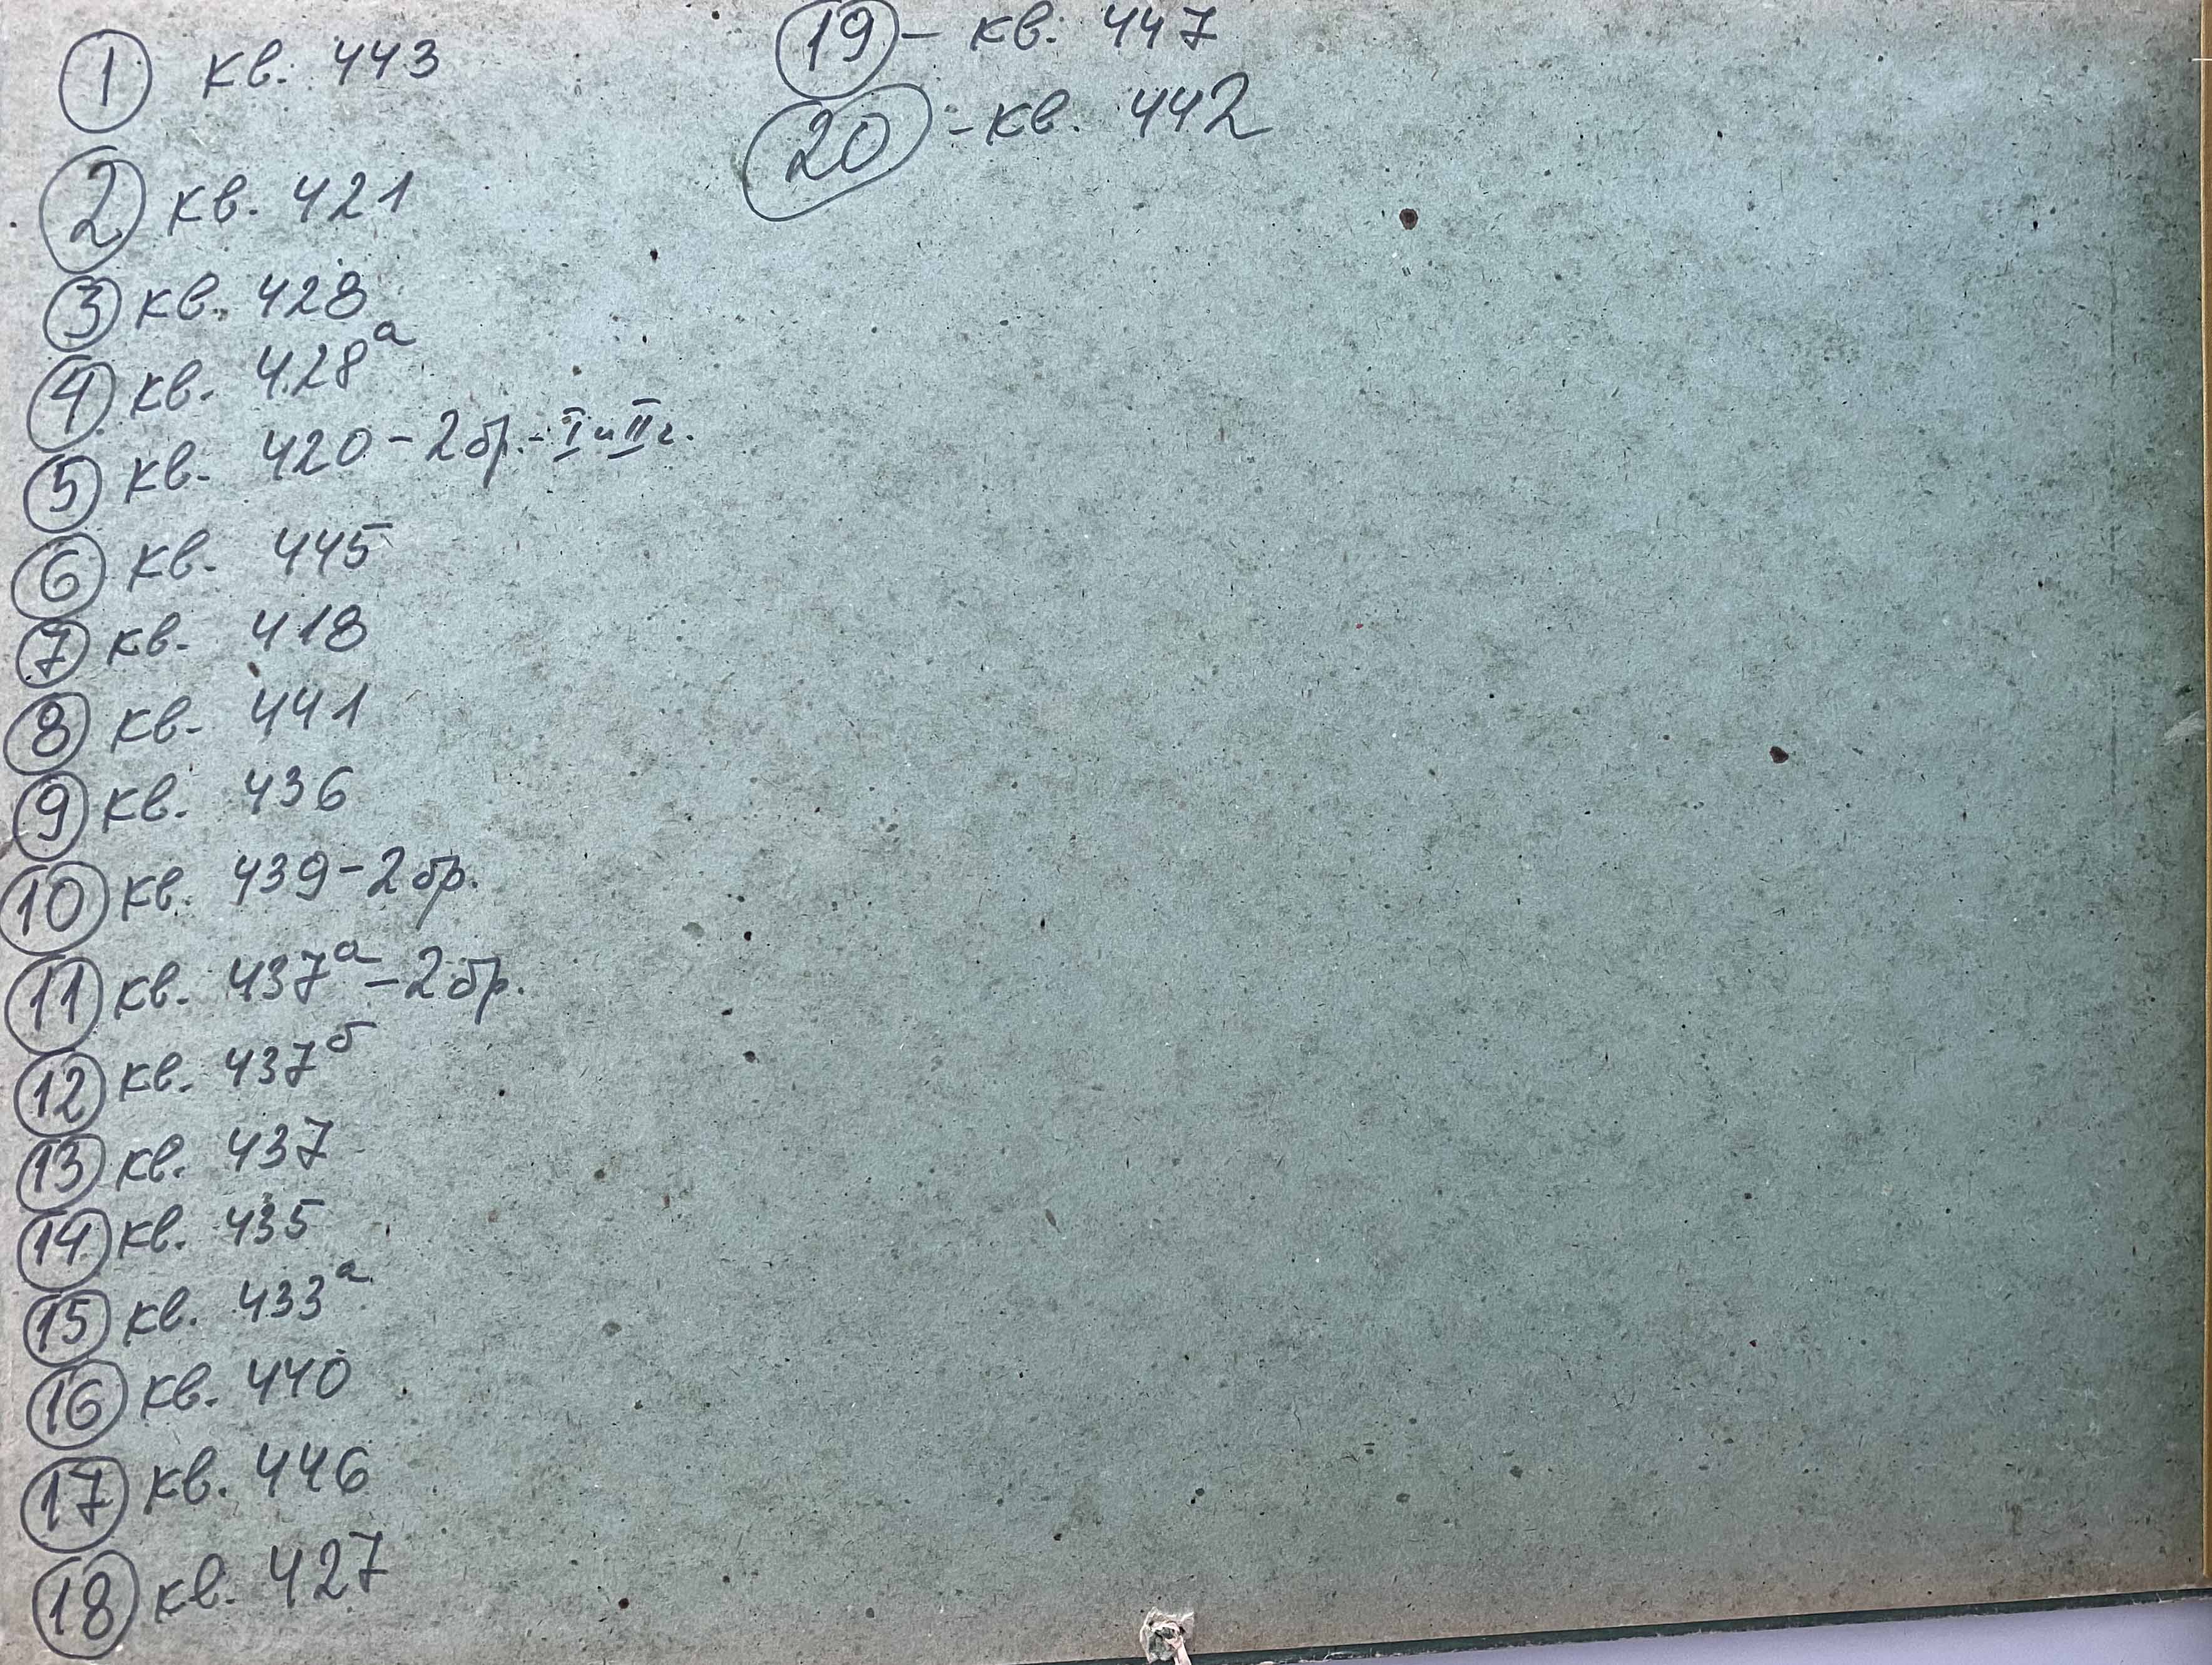 1 кв. 443
2 кв. 421
3 кв. 428
4 кв. 428а
5 кв. 420 - 2 бр. - I и II г.
6 кв. 445
7 кв. 418
8 кв. 441
9 кв. 436
10 кв. 439 - 2 бр.
11 кв. 437а - 2 бр.
12 кв. 437б
13 кв. 437
14 кв. 435
15 кв. 433а
16 кв. 440
17 кв. 446
18 кв. 427
19 - кв. 447
20 - кв. 442